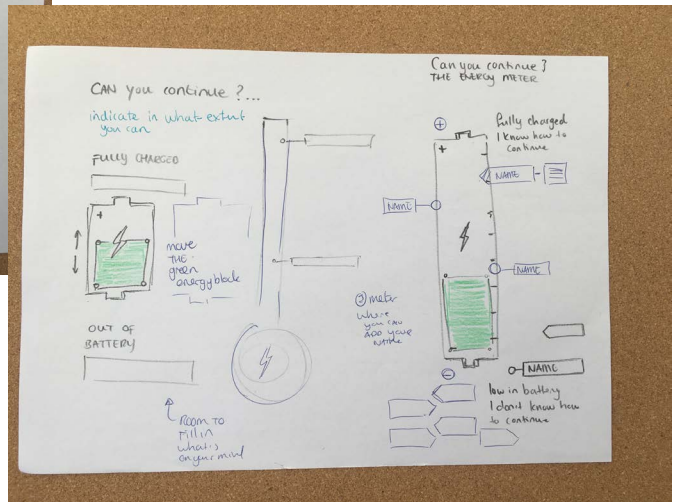 CAN you continue ?...
indicate in what extent
you can
FULLY CHARGED
+
move
THE
green
energyblock
OUT OF
BATTERY
ROOM TO
Fill in
what's
on your mind
Can you continue?
THE ENERGY METER
+
fully charged
I know how to
continue
+
NAME
NAME
NAME
meter
where
you can
ADD your
NAME
-
low in battery
I don't know how
to continue